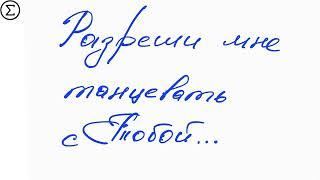 Σ
Разреши мне
танцевать
с Тобой...